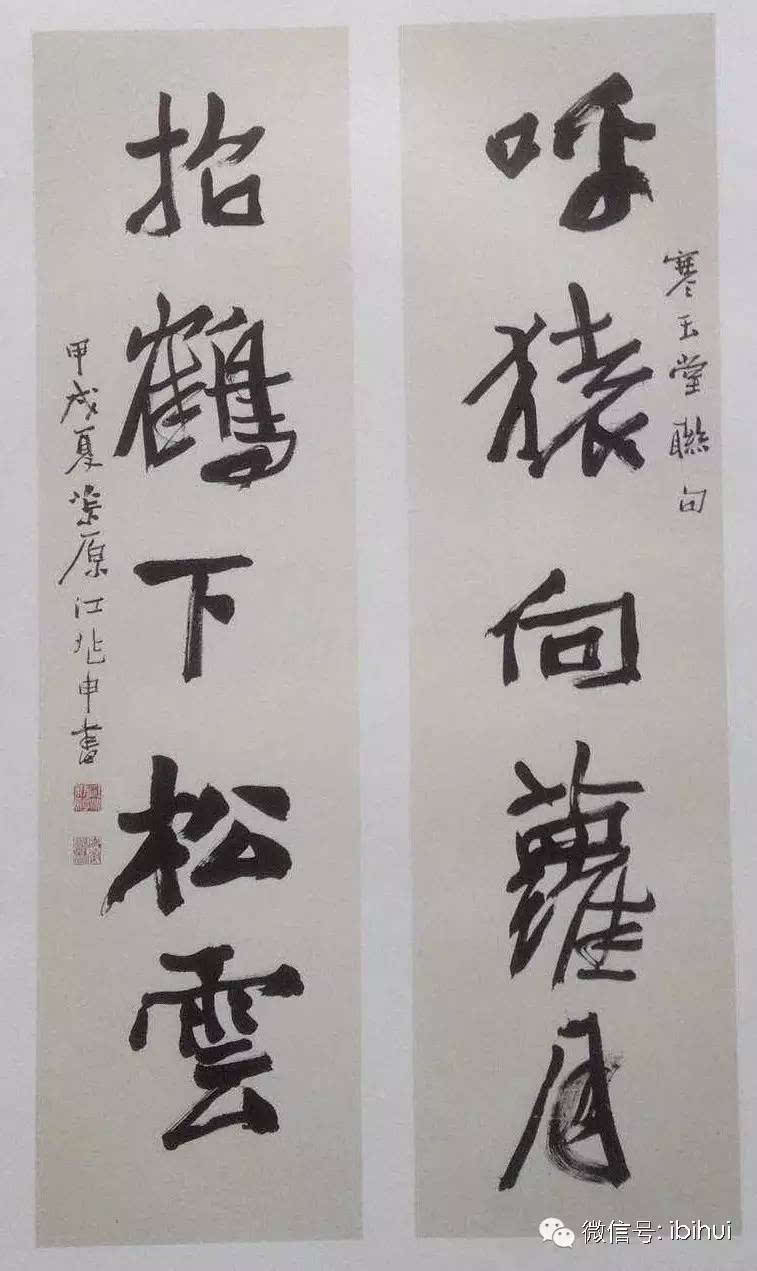 呼猿向蘿月
寒玉堂聯句
招鶴下松雲
甲戌夏椒原江兆申書
微信号: ibihui